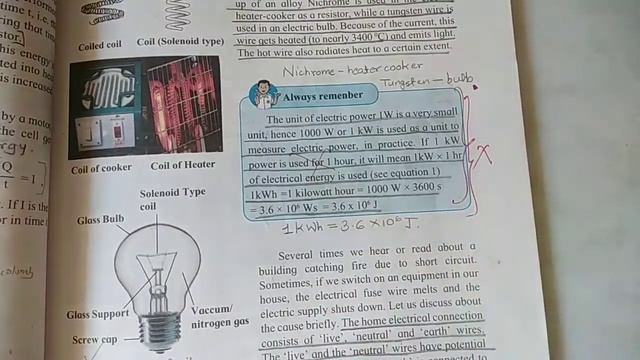 time t, i.e.
ring that
stor.
his energy
ted into heat
is increased
by a motor
the cell
ergy.
Q
t
= 1
. If I is the
or in time t
Coiled coil
Coil (Solenoid type)
Coil of cooker
Coil of Heater
Solenoid Type
coil
Glass Bulb
Glass Support
Vaccum/
nitrogen gas
Screw cap
up of an alloy Nichrome is used in the
heater-cooker as a resistor, while a tungsten wire is
used in an electric bulb. Because of the current, this
wire gets heated (to nearly 3400 °C) and emits light.
The hot wire also radiates heat to a certain extent.
Nichrome - heater cooker
Tungsten - bulb.
Always remenber
The unit of electric power 1W is a very small
unit, hence 1000 W or 1 kW is used as a unit to
measure electric power, in practice. If 1 kW
power is used for 1 hour, it will mean 1kW × 1 hr
of electrical energy is used (see equation 1)
1kWh = 1 kilowatt hour = 1000 W × 3600 s
= 3.6 × 10⁶ Ws = 3.6 x 10⁶ J
1 kWh = 3.6 × 10⁶ J.
Several times we hear or read about a
building catching fire due to short circuit.
Sometimes, if we switch on an equipment in our
house, the electrical fuse wire melts and the
electric supply shuts down. Let us discuss about
the cause briefly. The home electrical connection
consists of 'live', 'neutral' and 'earth' wires.
The 'live' and the 'neutral' wires have potential